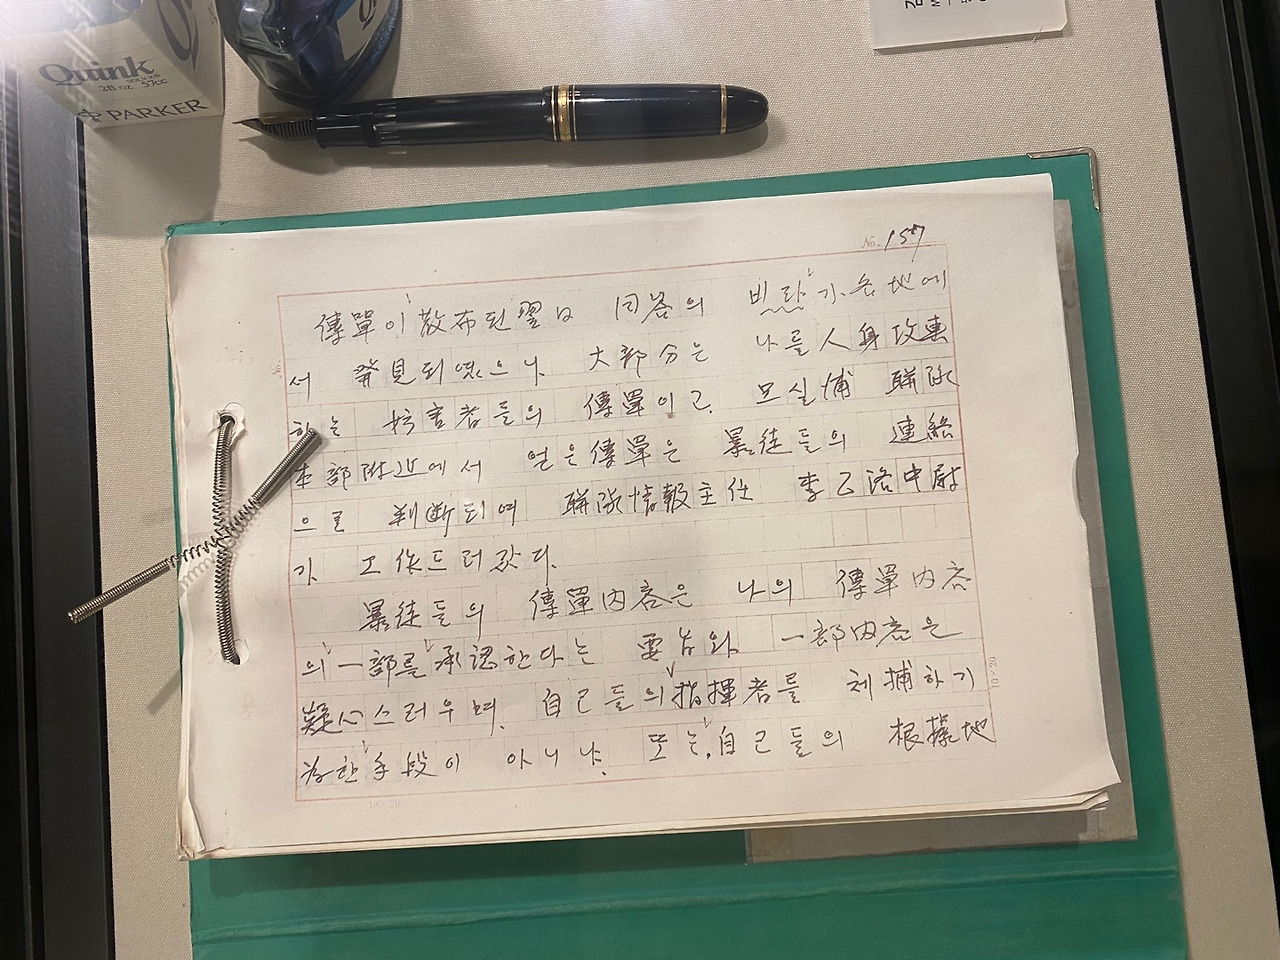 Quink
SOLV-X
2fl oz 57cc
PARKER
No. 157
傳單이 散布된 翌日 同答의 비라가 各地에
서 發見되였으나 大部分은 나를 人身攻擊
하는 妨害者들의 傳單이고. 모실浦 聯隊
本部附近에서 얻은 傳單은 暴徒들의 連絡
으로 判斷되여 聯隊情報主任 李乙洛中尉
가 工作드러갔다.
暴徒들의 傳單内容은 나의 傳單内容
의 一部를 承認한다는 要旨와 一部内容은
疑心스러우며. 自己들의 指揮者를 체捕하기
爲한 手段이 아니냐. 또는. 自己들의 根據地
10×20
10×20